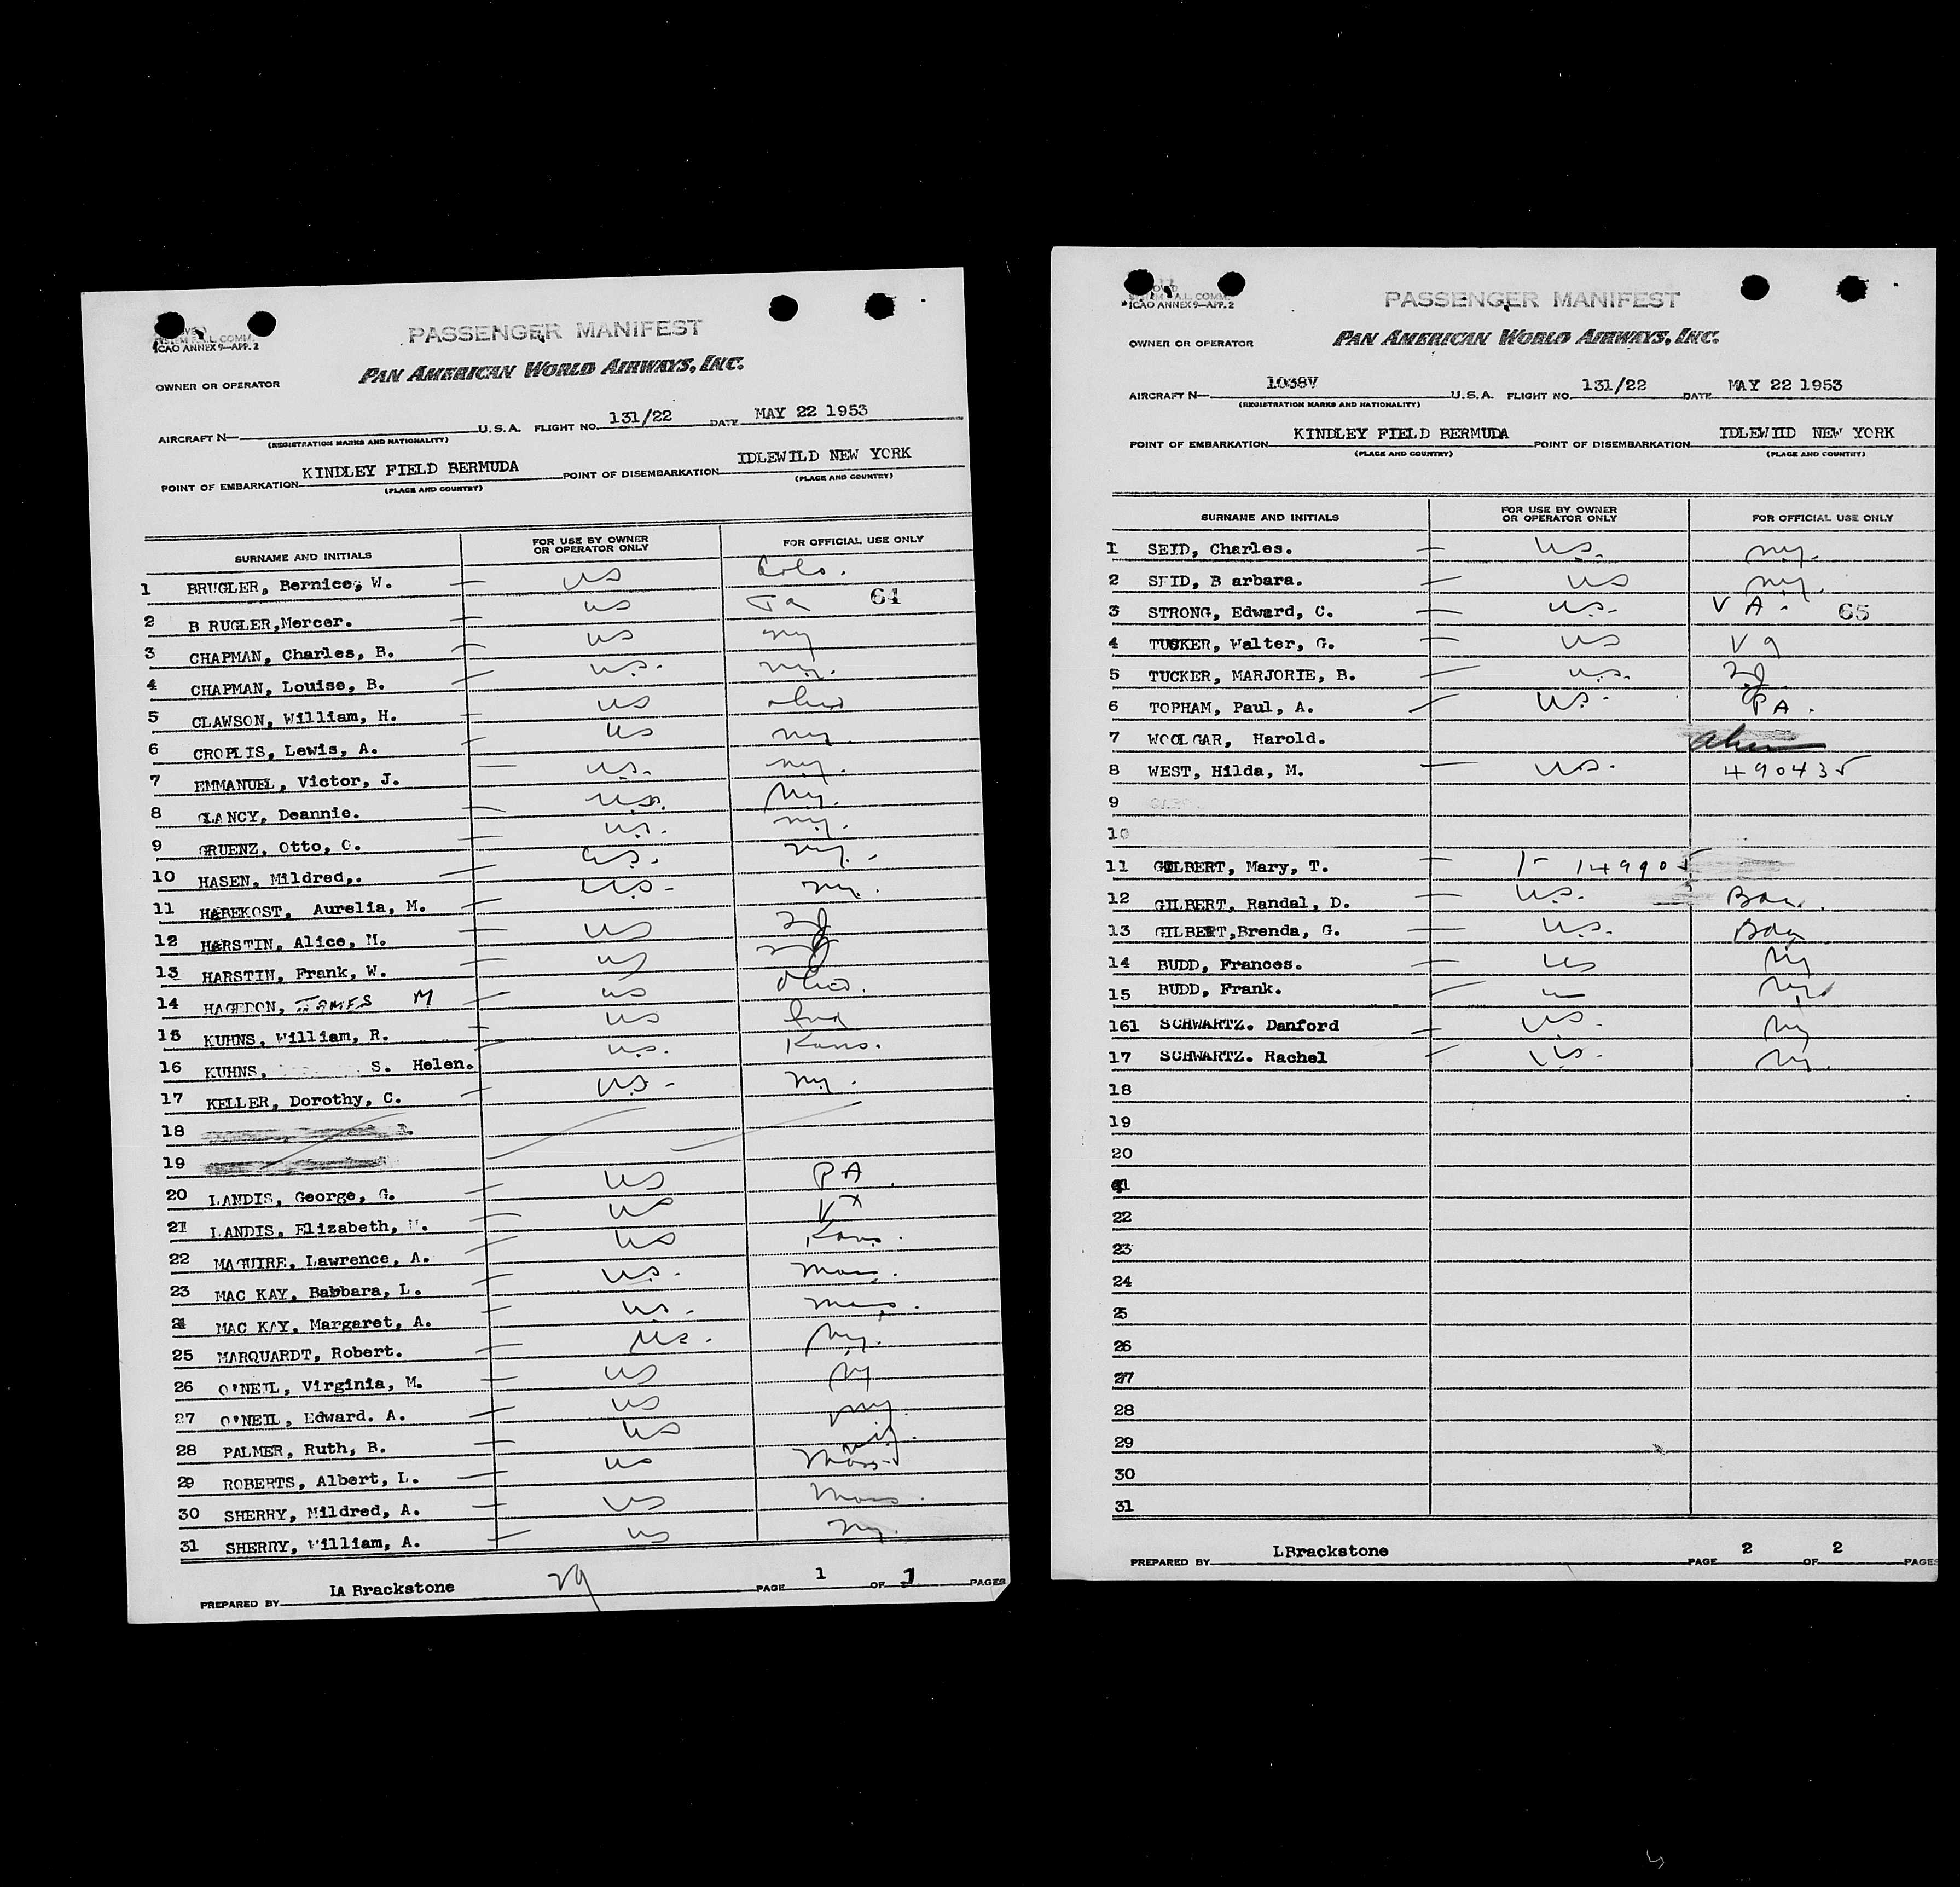 ICAO ANNEX 9—APP. 2
PASSENGER MANIFEST
PAN AMERICAN WORLD AIRWAYS, INC.
OWNER OR OPERATOR
AIRCRAFT N— U.S.A. FLIGHT NO. 131/22 DATE MAY 22 1953
(REGISTRATION MARKS AND NATIONALITY)
POINT OF EMBARKATION KINDLEY FIELD BERMUDA POINT OF DISEMBARKATION IDLEWILD NEW YORK
(PLACE AND COUNTRY) (PLACE AND COUNTRY)
SURNAME AND INITIALS FOR USE BY OWNER OR OPERATOR ONLY FOR OFFICIAL USE ONLY
1 BRUGLER, Bernice, W. — US Colo.
2 B RUGLER,Mercer. — US 64
3 CHAPMAN, Charles, B. — US ny
4 CHAPMAN, Louise, B. — U.S. ny.
5 CLAWSON, William, H. — US ohio
6 CROPLIS, Lewis, A. — US ny
7 EMMANUEL, Victor, J. — U.S. ny.
8 GLANCY, Deannie. — U.S. ny.
9 GRUENZ, Otto, C. — U.S. ny.
10 HASEN, Mildred,. — U.S. ny.
11 HABEKOST, Aurelia, M. — U.S. ny.
12 HARSTIN, Alice, M. — US NJ
13 HARSTIN, Frank, W. — US NJ
14 HAGEDON, JAMES M — US Ohio.
15 KUHNS, William, R. — US Ind
16 KUHNS, S. Helen. — U.S. Kans.
17 KELLER, Dorothy, C. — U.S. ny.
18
19
20 LANDIS, George, G. — US PA.
21 LANDIS, Elizabeth, — US
22 MAGUIRE, Lawrence, A. — US Kans.
23 MAC KAY, Babbara, L. — U.S. Mass.
24 MAC KAY, Margaret, A. — U.S. Mass.
25 MARQUARDT, Robert. — U.S. ny.
26 O'NEIL, Virginia, M. — US ny
27 O'NEIL, Edward. A. — US ny.
28 PALMER, Ruth, B. — US
29 ROBERTS, Albert, L. — US Mass.
30 SHERRY, Mildred, A. — US Mass.
31 SHERRY, William, A. — US ny.
PREPARED BY IA Brackstone PAGE 1 OF 1 PAGES
ICAO ANNEX 9—APP. 2
PASSENGER MANIFEST
PAN AMERICAN WORLD AIRWAYS, INC.
OWNER OR OPERATOR
AIRCRAFT N— 1038V U.S.A. FLIGHT NO. 131/22 DATE MAY 22 1953
(REGISTRATION MARKS AND NATIONALITY)
POINT OF EMBARKATION KINDLEY FIELD BERMUDA POINT OF DISEMBARKATION IDLEWIID NEW YORK
(PLACE AND COUNTRY) (PLACE AND COUNTRY)
SURNAME AND INITIALS FOR USE BY OWNER OR OPERATOR ONLY FOR OFFICIAL USE ONLY
1 SEID, Charles. — U.S. ny.
2 SEID, B arbara. — US ny.
3 STRONG, Edward, C. — U.S. VA. 65
4 TUCKER, Walter, G. — US Va
5 TUCKER, MARJORIE, B. — U.S. NJ
6 TOPHAM, Paul, A. — U.S. PA.
7 WOOLGAR, Harold. alien
8 WEST, Hilda, M. — U.S. 490435
9
10
11 GILBERT, Mary, T. —
12 GILBERT, Randal, D. — U.S. Bda.
13 GILBERT,Brenda, G. — U.S. Bda
14 BUDD, Frances. — US ny
15 BUDD, Frank. — ny
161 SCHWARTZ. Danford — US. ny
17 SCHWARTZ. Rachel — US. ny.
18
19
20
22
23
24
25
26
27
28
29
30
31
PREPARED BY LBrackstone PAGE 2 OF 2 PAGES